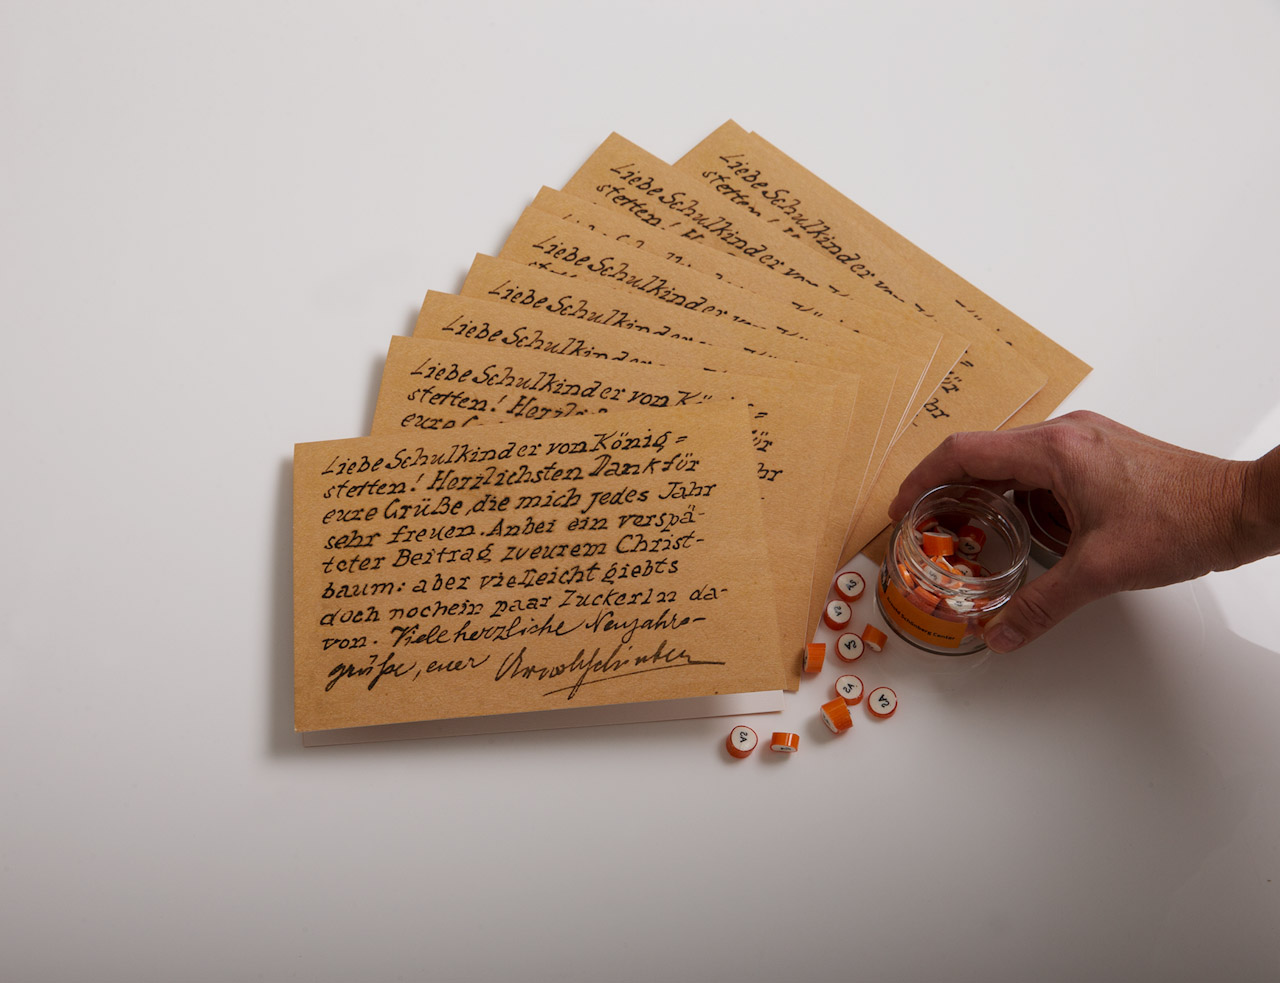 Liebe Schulkinder
stetten!
Liebe Schulkinder von
stetten! H
Liebe Schulkinder von
Liebe Schulkinder
Liebe Schulkinder
Liebe Schulkinder von Kö
stetten! Herzl
eure
Liebe Schulkinder von König=
stetten! Herzlichsten Dank für
eure Grüße, die mich jedes Jahr
sehr freuen. Anbei ein verspä-
teter Beitrag zu eurem Christ-
baum: aber vielleicht giebts
doch noch ein paar Zuckerln da-
von. Viele herzliche Neujahrs-
grüße, euer Arnold Schönberg
Schönberg Center